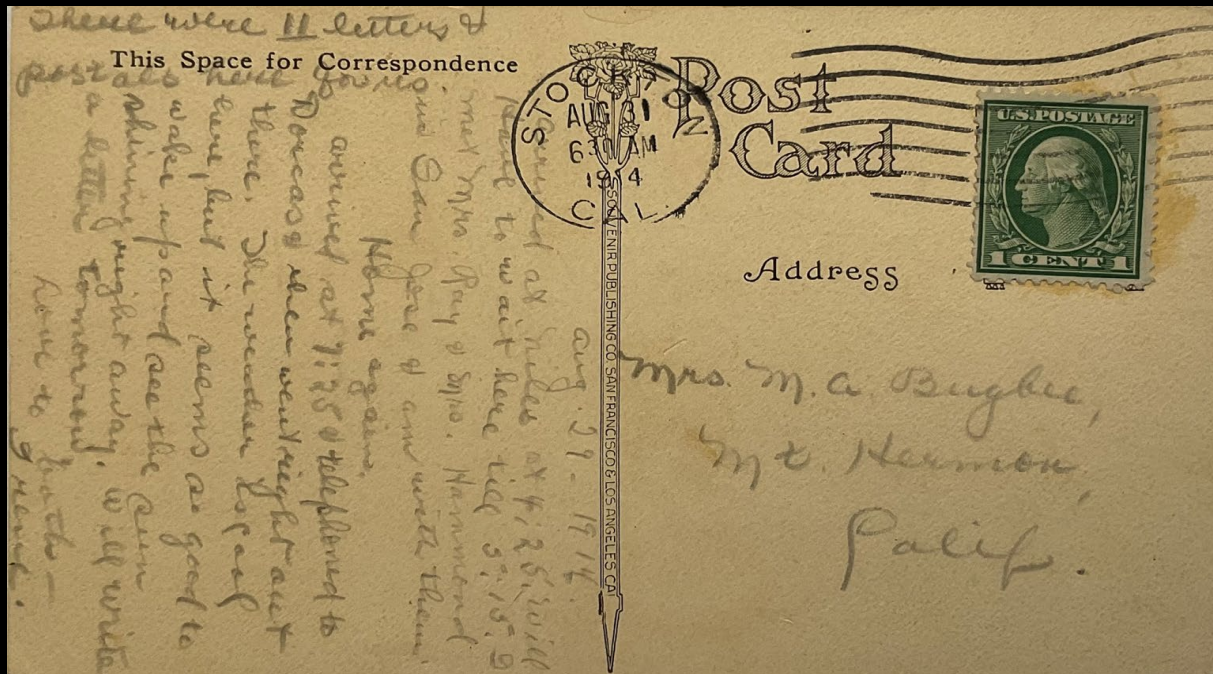 There were 11 letters &
postals here for us.
This Space for Correspondence
Aug. 29 - 1914.
Arrived at Niles at 4:25, will
have to wait here till 5:15. I
met Mrs. Ray & Mrs. Hammond
in San Jose & am with them.
Home again.
arrived at 7:25 & telephoned to
Dorcas & then went right out
there. The weather is cool
here, but it seems so good to
wake up and see the sun
shining right away. Will write
a letter tomorrow
Love to both —
STOCKTON
AUG 31
6 30 AM
1914
CAL.
Post
Card
U.S. POSTAGE
1 CENT 1
SOUVENIR PUBLISHING CO. SAN FRANCISCO & LOS ANGELES CAL
Address
Mrs. M. A. Bugbee,
Mt. Hermon,
Calif.